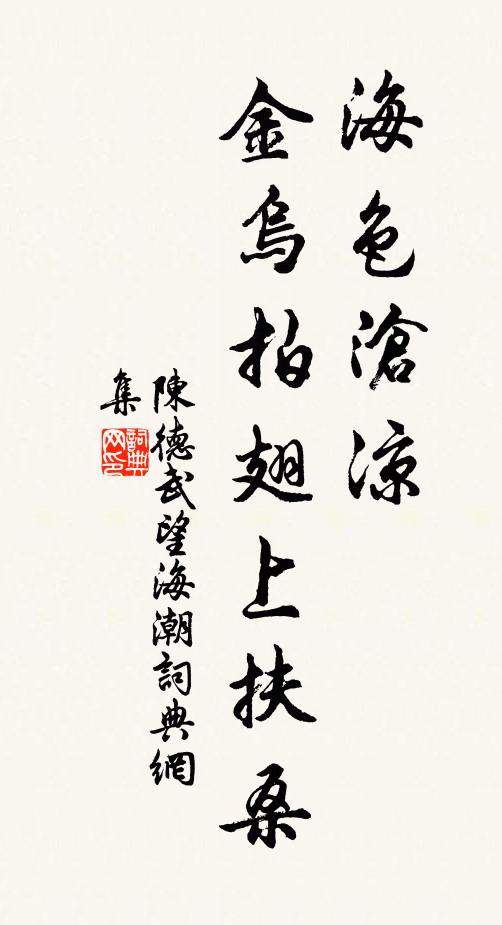 海色滄涼
金烏拍翅上扶桑
陳德武望海潮詞典網
集
詞典
网印